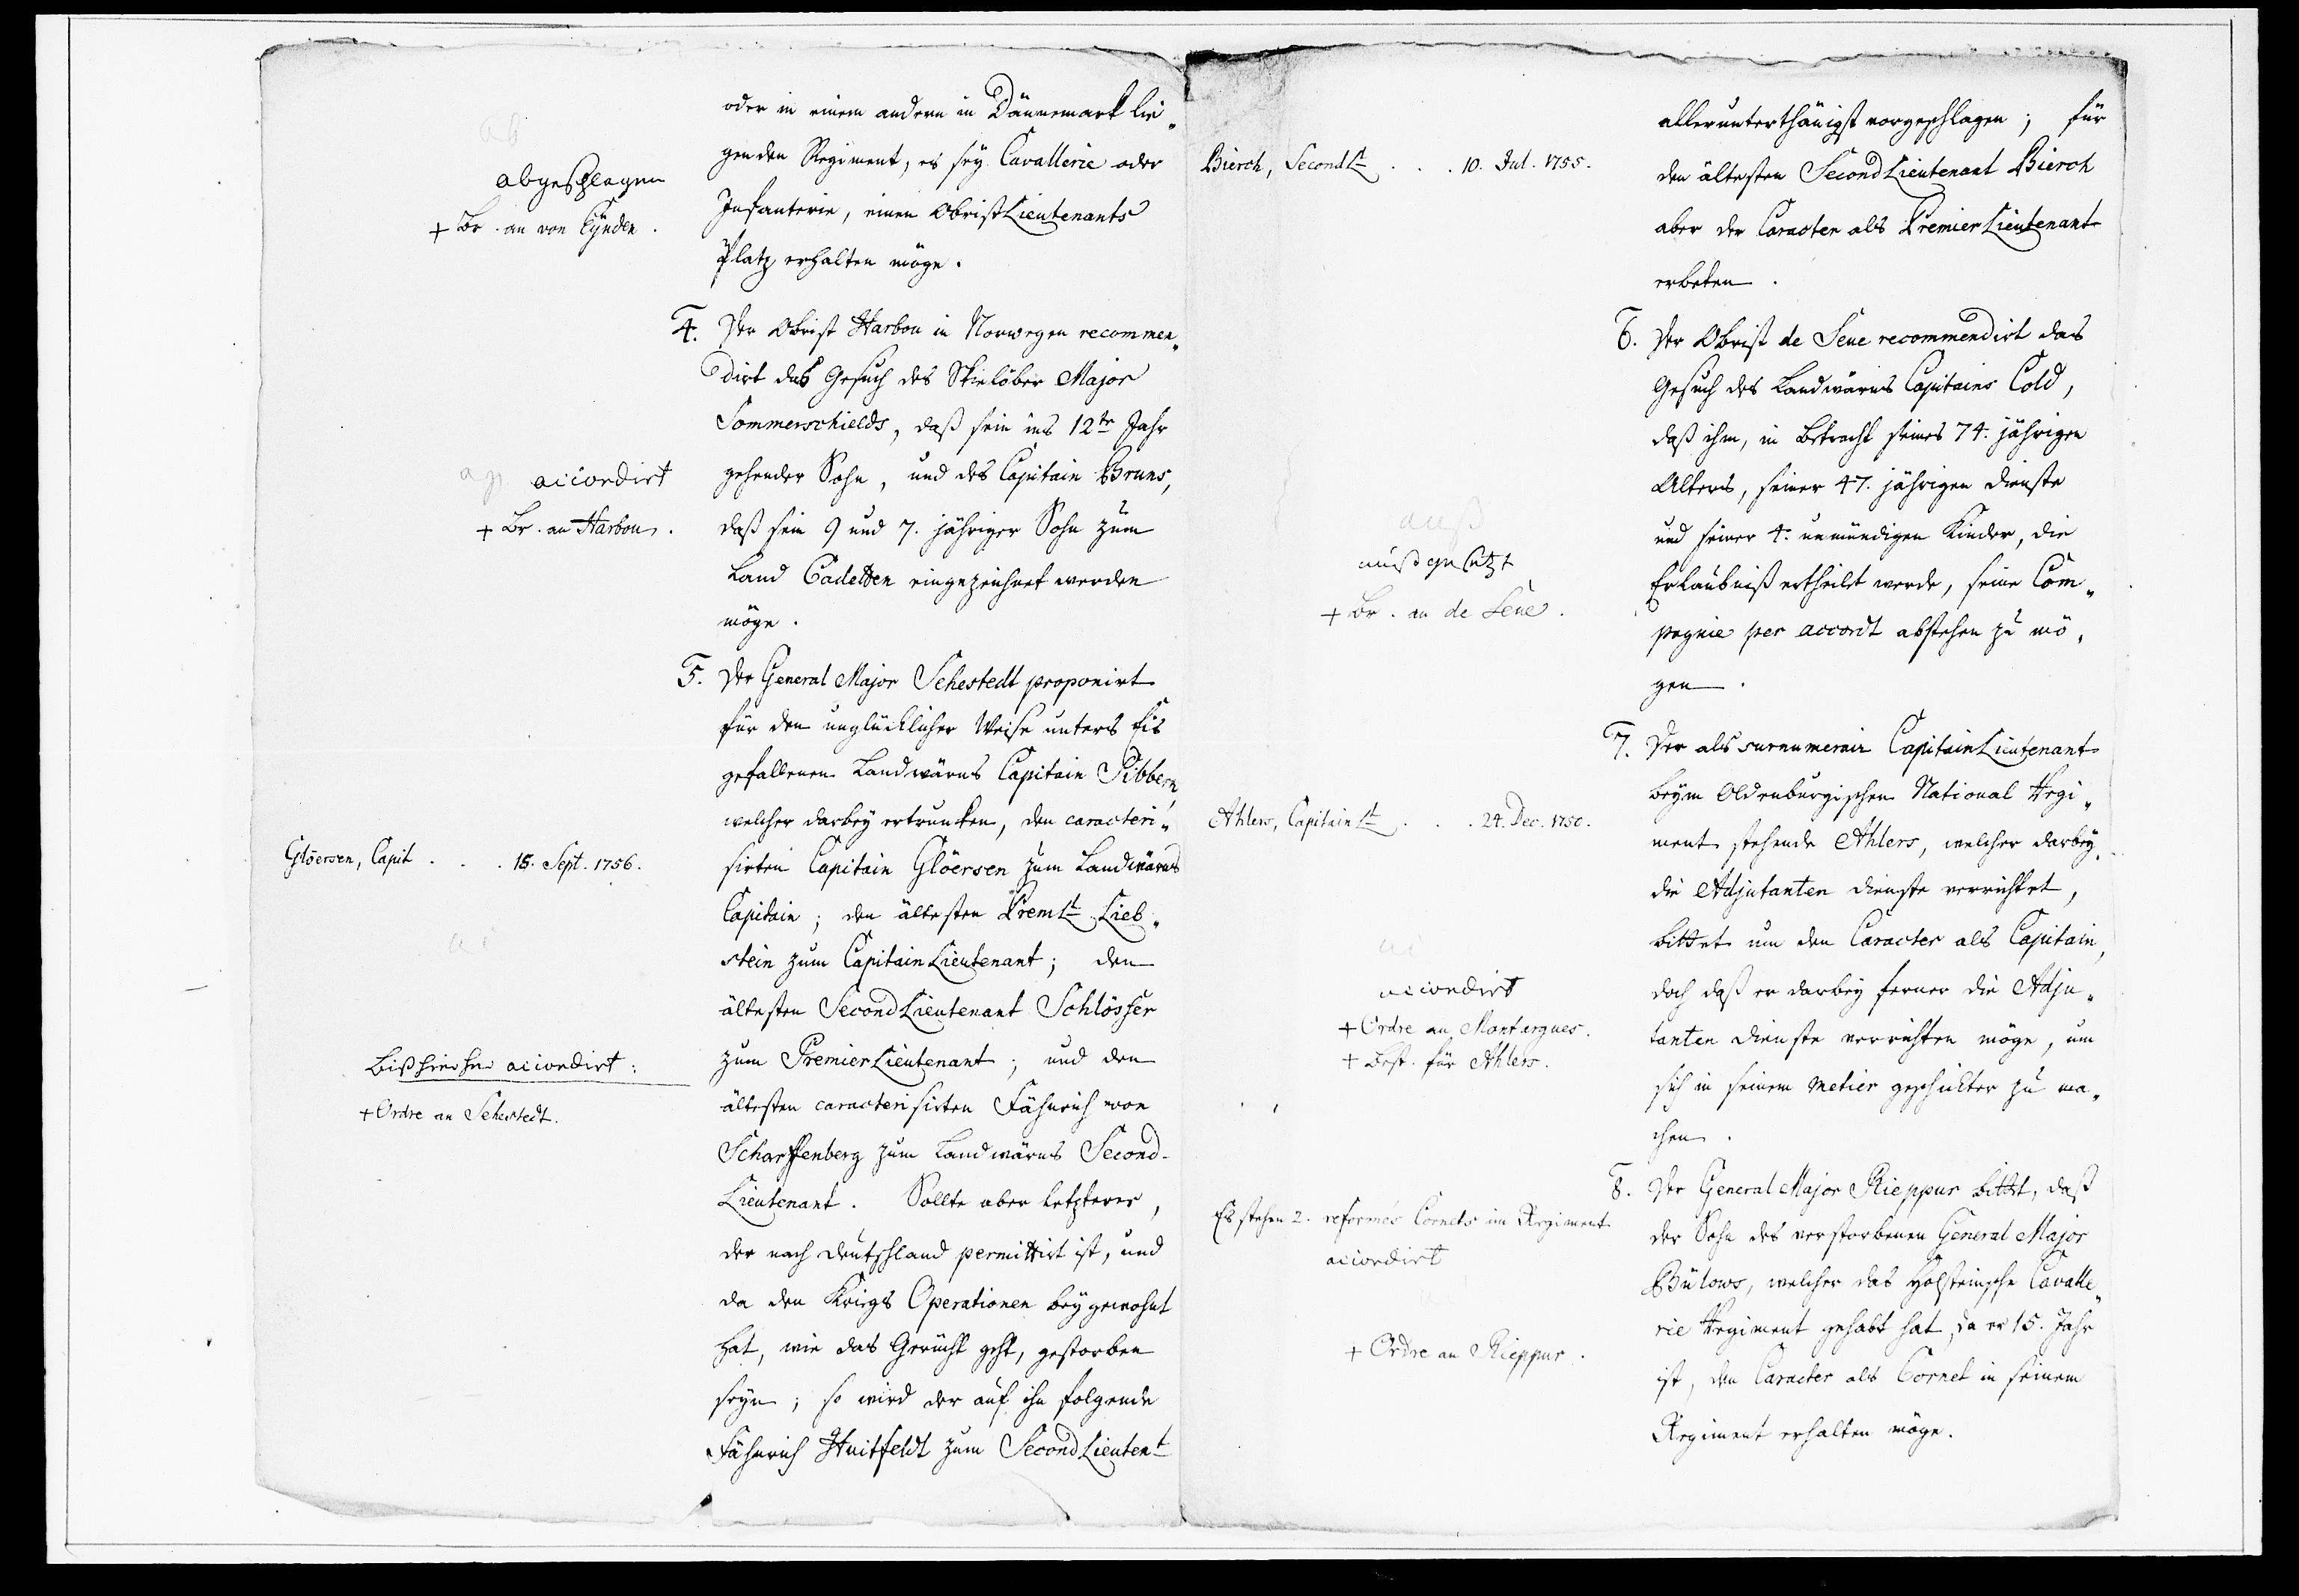 oder in einem andern in Dännemark lie„
genden Regiment, es sey Cavallerie oder
Infanterie, einen ObristLieutenants
Platz erhalten möge.
ab
abgeschlagen
+ Br. an von Eynden.
4. Der Obrist Harbou in Norwegen recommen„
dirt das Gesuch des Skielöber Major
Sommerschields, daß sein ins 12te Jahr
gehender Sohn, und des Capitain Bruns,
daß sein 9 und 7. jähriger Sohn zum
Land Cadetten eingezeichnet werden
möge.
accordirt
+ Br. an Harbou.
5. Der General Major Sehestedt proponirt
für den unglücklicher Weise unters Eis
gefallenen Landwärns Capitain Sibbern,
welcher darbey ertruncken, den caracteri„
sirten Capitain Glöersen zum Landwärns
Capitain; den ältesten PremLt Lieb„
stein zum CapitainLieutenant; den
ältesten SecondLieutenant Schlösser
zum PremierLieutenant; und den
ältesten caracterisirten Fähnrich von
Scharffenberg zum Landwärns Second-
Lieutenant. Sollte aber letzterer,
der nach Deutschland permittirt ist, und
da den Kriegs Operationen beygewohnt
hat, wie das Gerücht geht, gestorben
seyn; so wird der auf ihn folgende
Fähnrich Huitfeldt zum SecondLieutent
Glöersen, Capit . . . 15. Sept. 1756.
ac
Bißhierher accordirt:
+ Ordre an Sehestedt.
allerunterthänigst vorgeschlagen; für
den ältesten SecondLieutenant Bierch
aber der Caracter als PremierLieutenant
erbeten.
Bierch, SecondLt . . . 10. Jul. 1755.
6. Der Obrist de Seue recommendirt das
Gesuch des Landwärns Capitains Cold,
daß ihm, in Betracht seines 74. jährigen
Alters, seiner 47. jährigen Dienste
und seiner 4. unmündigen Kinder, die
Erlaubniß ertheilet werde, seine Com„
pagnie per accordt abstehen zu mö„
gen.
auß
außgesetzt
+ Br. an de Seue.
7. Der als surnumerair CapitainLieutenant
beym Oldenburgischen National Regi„
ment stehende Ahlers, welcher darbey
die Adjutanten Dienste verrichtet,
bittet um den Caracter als Capitain,
doch daß er darbey ferner die Adju„
tanten Dienste verrichten möge, um
sich in seinem metier geschickter zu ma„
chen.
Ahlers, CapitainLt . . . 24. Dec. 1750.
ac
accordirt
+ Ordre an Montargues.
+ Best. für Ahlers.
8. Der General Major Rieppur bittet, daß
der Sohn des verstorbenen General Major
Bülows, welcher das Holsteinsche Cavalle„
rie Regiment gehabt hat, da er 15. Jahr
ist, den Caracter als Cornet in seinem
Regiment erhalten möge.
Es stehen 2. reformés Cornets im Regiment
accordirt
+ Ordre an Rieppur.